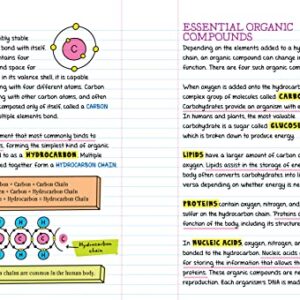 ibly stable
bond with itself.
ntains four
nd space for
in its valence shell, it is capable
ing with four different atoms. Carbon
ng with other carbon atoms, and often
composed only of itself, called a CARBON
ultiple elements bond.
C
ment that most commonly binds to
s, forming the simplest kind of organic
d to as a HYDROCARBON. Multiple
ed together form a HYDROCARBON CHAIN:
rbon + Carbon + Carbon Chain
en + Carbon + Hydrocarbon Chain
n + Hydrocarbon + Hydrocarbon Chain
H H H
C C C H
H H H
Hydrocarbon
chain
n chains are common in the human body.
ESSENTIAL ORGANIC
COMPOUNDS
Depending on the elements added to a hy
chain, an organic compound can change in
function. There are four such organic com
When oxygen is added into the hydrocar
complex group of molecules called CARBO
Carbohydrates provide an organism with e
In humans and plants, the most valuable
carbohydrate is a sugar called GLUCOSE
which is broken down to produce energy.
LIPIDS have a larger amount of carbon a
oxygen. Lipids assist in the storage of ene
body often converts carbohydrates into li
versa depending on whether energy is ne
PROTEINS contain oxygen, nitrogen, and
sulfur on the hydrocarbon chain. Proteins c
function of the body, including its structure
In NUCLEIC ACIDS oxygen, nitrogen, an
bonded to the hydrocarbon. Nucleic acids
for storing the information that allows th
proteins. These organic compounds are ne
reproduction. Each organism's DNA is mad